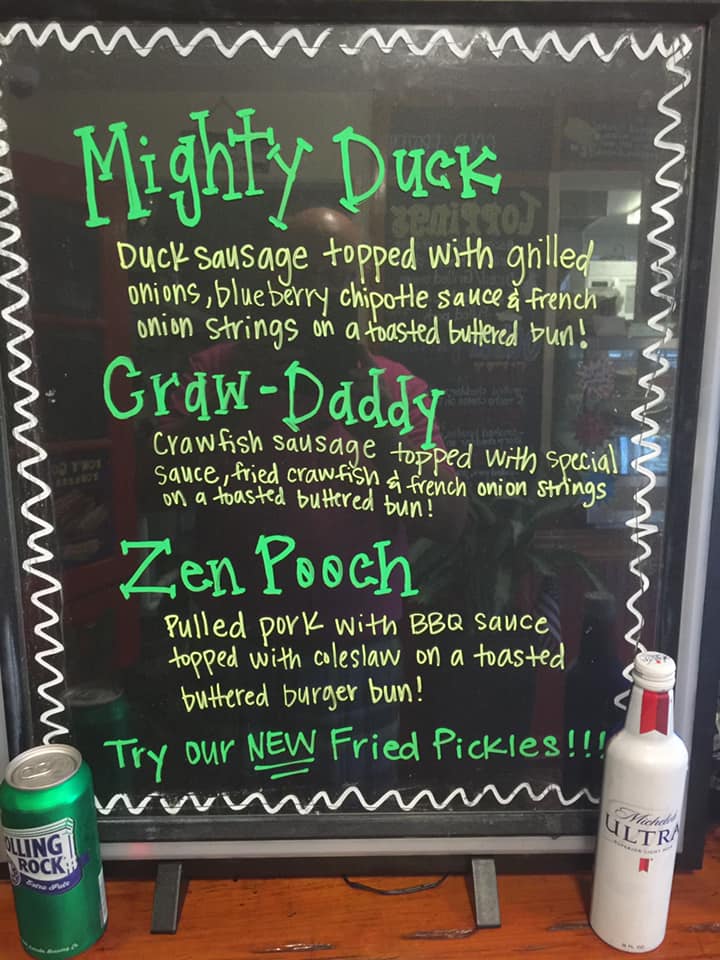 Mighty Duck
Duck sausage topped with grilled
onions, blueberry chipotle sauce & french
onion strings on a toasted buttered bun!
Craw-Daddy
Crawfish sausage topped with special
sauce, fried crawfish & french onion strings
on a toasted buttered bun!
Zen Pooch
Pulled pork with BBQ sauce
topped with coleslaw on a toasted
buttered burger bun!
Try our NEW Fried Pickles!!!
OLLING
ROCK
Extra Pale
Michelob
ULTRA
SUPERIOR LIGHT BEER
16 FL. OZ.